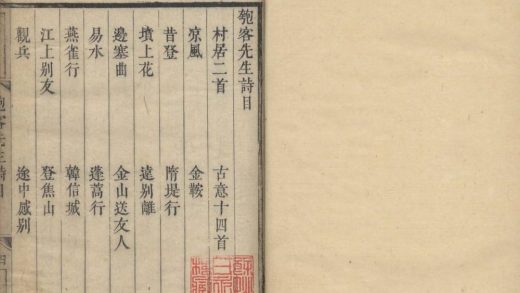 匏客先生詩目
村居二首 古意十四首
涼風 金鞍
昔登 隋堤行
墳上花 遠別離
邊塞曲 金山送友人
易水 蓬蒿行
燕雀行 韓信城
江上別友 登焦山
觀兵 途中感別
匏客先生詩目